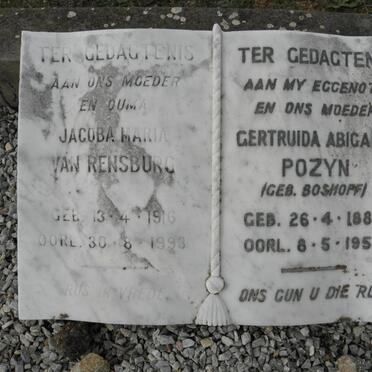 TER GEDAGTENIS
AAN ONS MOEDER
EN OUMA
JACOBA MARIA
VAN RENSBURG
GEB. 13-4-1916
OORL. 30-8-1993
RUS IN VREDE
TER GEDAGTEN
AAN MY EGGENOT
EN ONS MOEDER
GERTRUIDA ABIGA
POZYN
(GEB. BOSHOFF)
GEB. 26-4-188
OORL. 8-5-195
ONS GUN U DIE RU